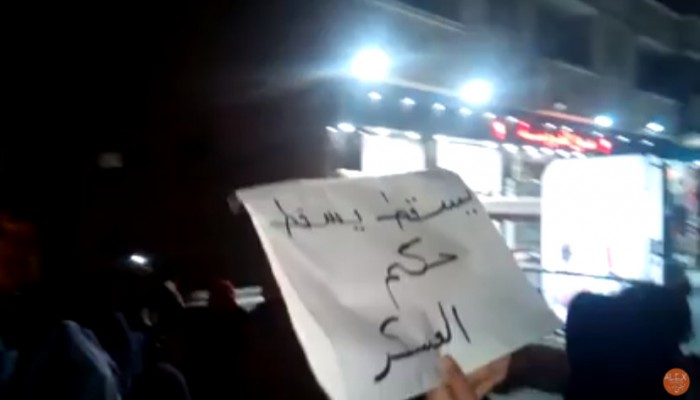 يسقط يسقط
حكم
العسكر
ALEX